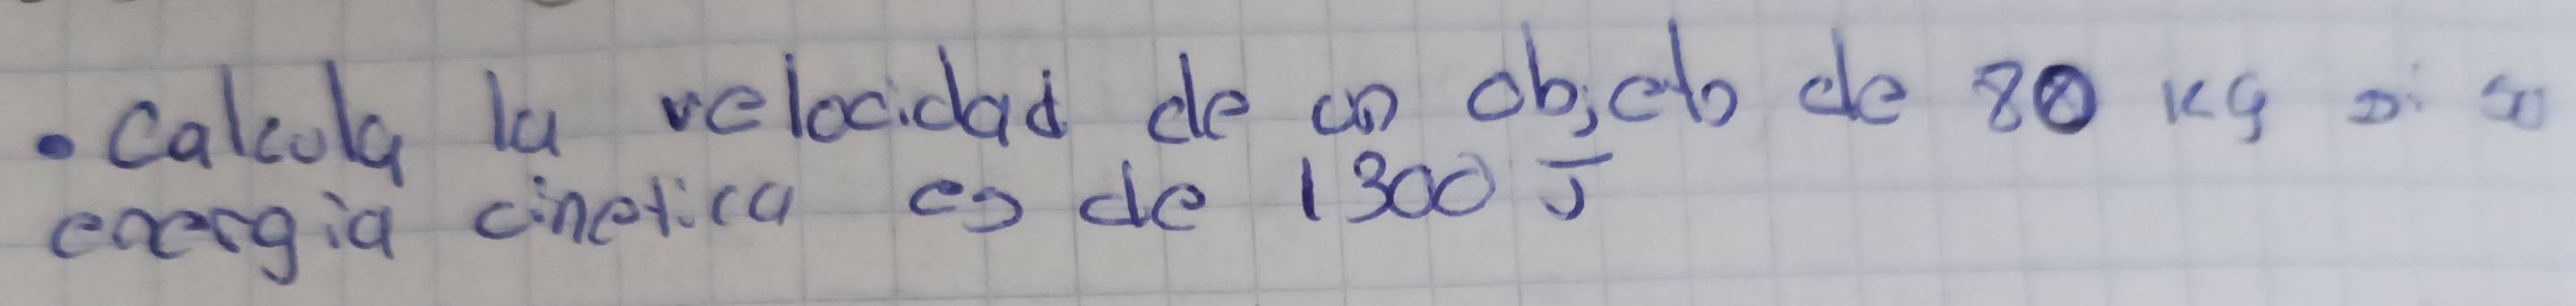 • Calcula la velocidad de un objeto de 80 kg si su
energia cinetica es de 1300 J